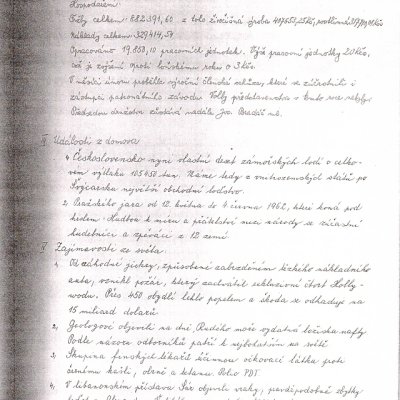 Hospodaření
Tržby celkem 882.391,60 z toho živočišná výroba
Náklady celkem 329.414,54
Odpracováno 19.858,10 pracovních jednotek. Výše pracovní jednotky 20 Kčs,
což je zvýšení proti loňskému roku o 3 Kčs.
V měsíci únoru proběhla výroční členská schůze, které se zúčastnili i
zástupci patronátního závodu. Volby představenstva v tomto roce nebyly.
Předsedou družstva zůstává nadále Jos. Bradáč ml.
IV Události z domova
1, Československo nyní vlastní deset zámořských lodí o celko-
vém výtlaku 105.450 tun. Máme tedy z vnitrozemských států po
Švýcarsku největší obchodní loďstvo.
2, Pražského jara od 12. května do 4 června 1962, které koná pod
heslem Hudbou k míru a přátelství mezi národy se zúčastní
hudebníci a zpěváci z 12 zemí
V Zajímavosti ze světa.
1, Od záhadné jiskry, způsobené zabrzděním těžkého nákladního
auta, vznikl požár, který zachvátil exkluzivní čtvrť Holly-
woodu. Přes 450 obydlí lehlo popelem a škoda se odhaduje na
15 miliard dolarů
2, Geologové objevili na dně Rudého moře vydatná ložiska nafty
Podle názoru odborníků patří k nejbohatším na světě
3, Skupina finských lékařů účinnou očkovací látku proti
černému kašli, obrně a tetanu. Polio PDT
4, V libanonském přístavu objevili vraky, pravděpodobně zbytky